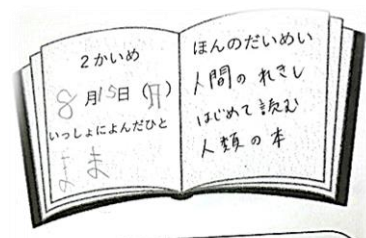 2かいめ
8月15日(月)
いっしょによんだひと
まま
ほんのだいめい
人間のれきし
はじめて読む
人類の本